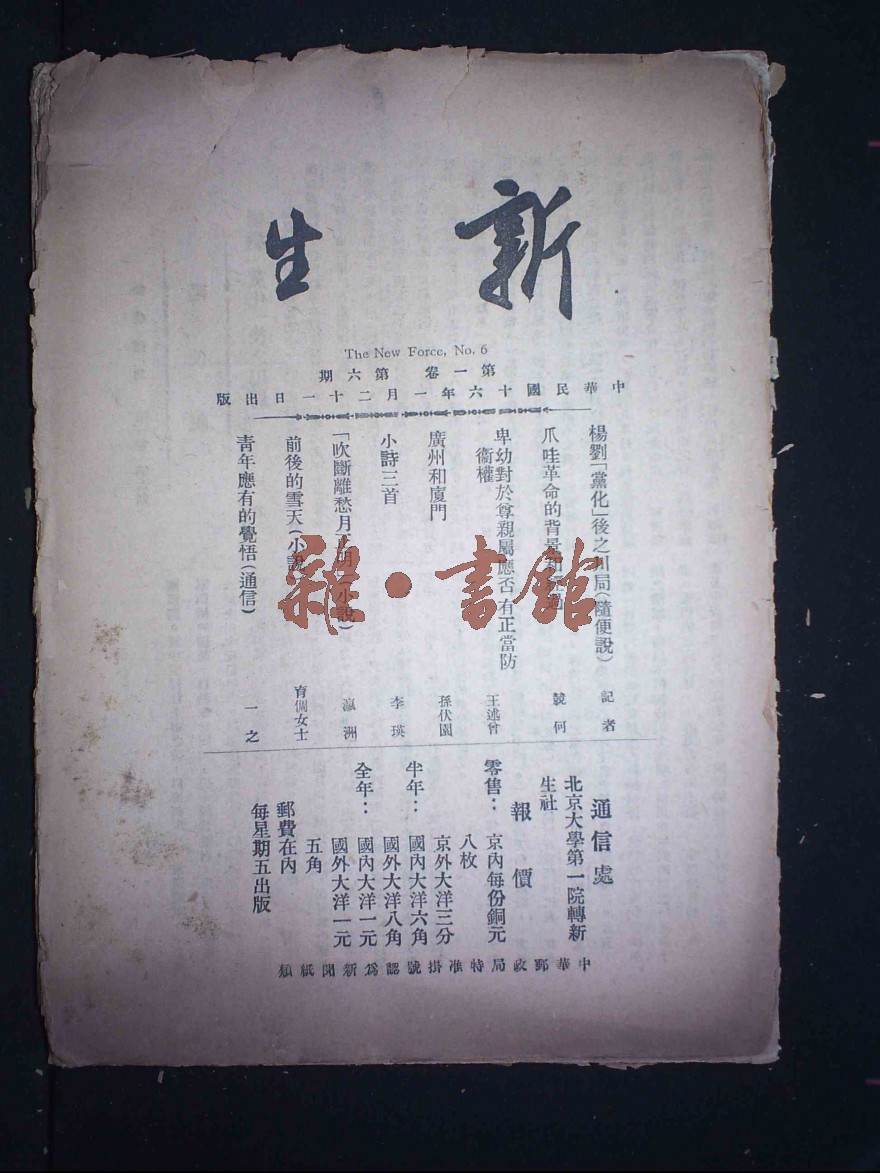 新生
The New Force, No. 6
第一卷 第六期
中華民國十六年一月二十一日出版
楊劉「黨化」後之川局(隨便說) 記者
爪哇革命的背景和經過 競何
卑幼對於尊親屬應否有正當防
衞權 王述曾
廣州和廈門 孫伏園
小詩三首 李瑛
「吹斷離愁月 明」(小說) 瀛洲
前後的雪天(小說) 育倜女士
靑年應有的覺悟(通信) 一之
通信處
北京大學第一院轉新
生社
報價
零售:京內每份銅元
八枚
京外大洋三分
半年:國內大洋六角
國外大洋八角
全年:國內大洋一元
國外大洋一元
五角
郵費在內
每星期五出版
中華郵政局特准掛號認爲新聞紙類
雜·書館